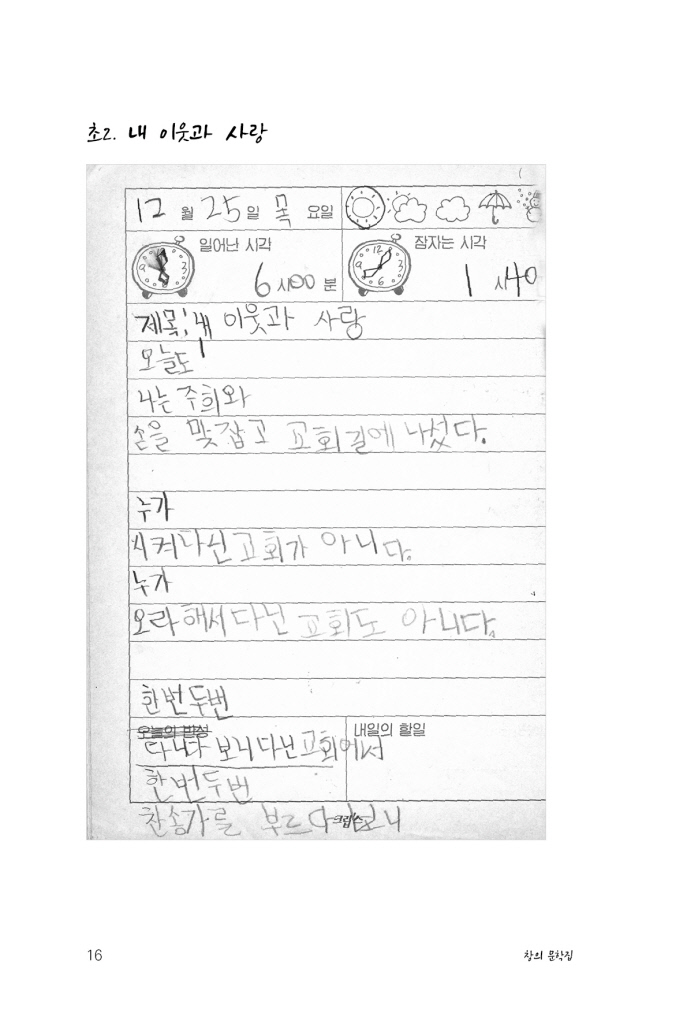 초2. 내 이웃과 사랑
12 월 25 일 목 요일
일어난 시각
6 시 00 분
잠자는 시각
1 시 40
제목: 내 이웃과 사랑
오늘도
나는 주희와
손을 맞잡고 교회길에 나섰다.
누가
시켜 다닌 교회가 아니다.
누가
오라 해서 다닌 교회도 아니다.
한번 두번
오늘의 반성
내일의 할일
다니다 보니 다닌 교회에서
한번 두번
찬송가를 부르다 보니
16
창의 문학집